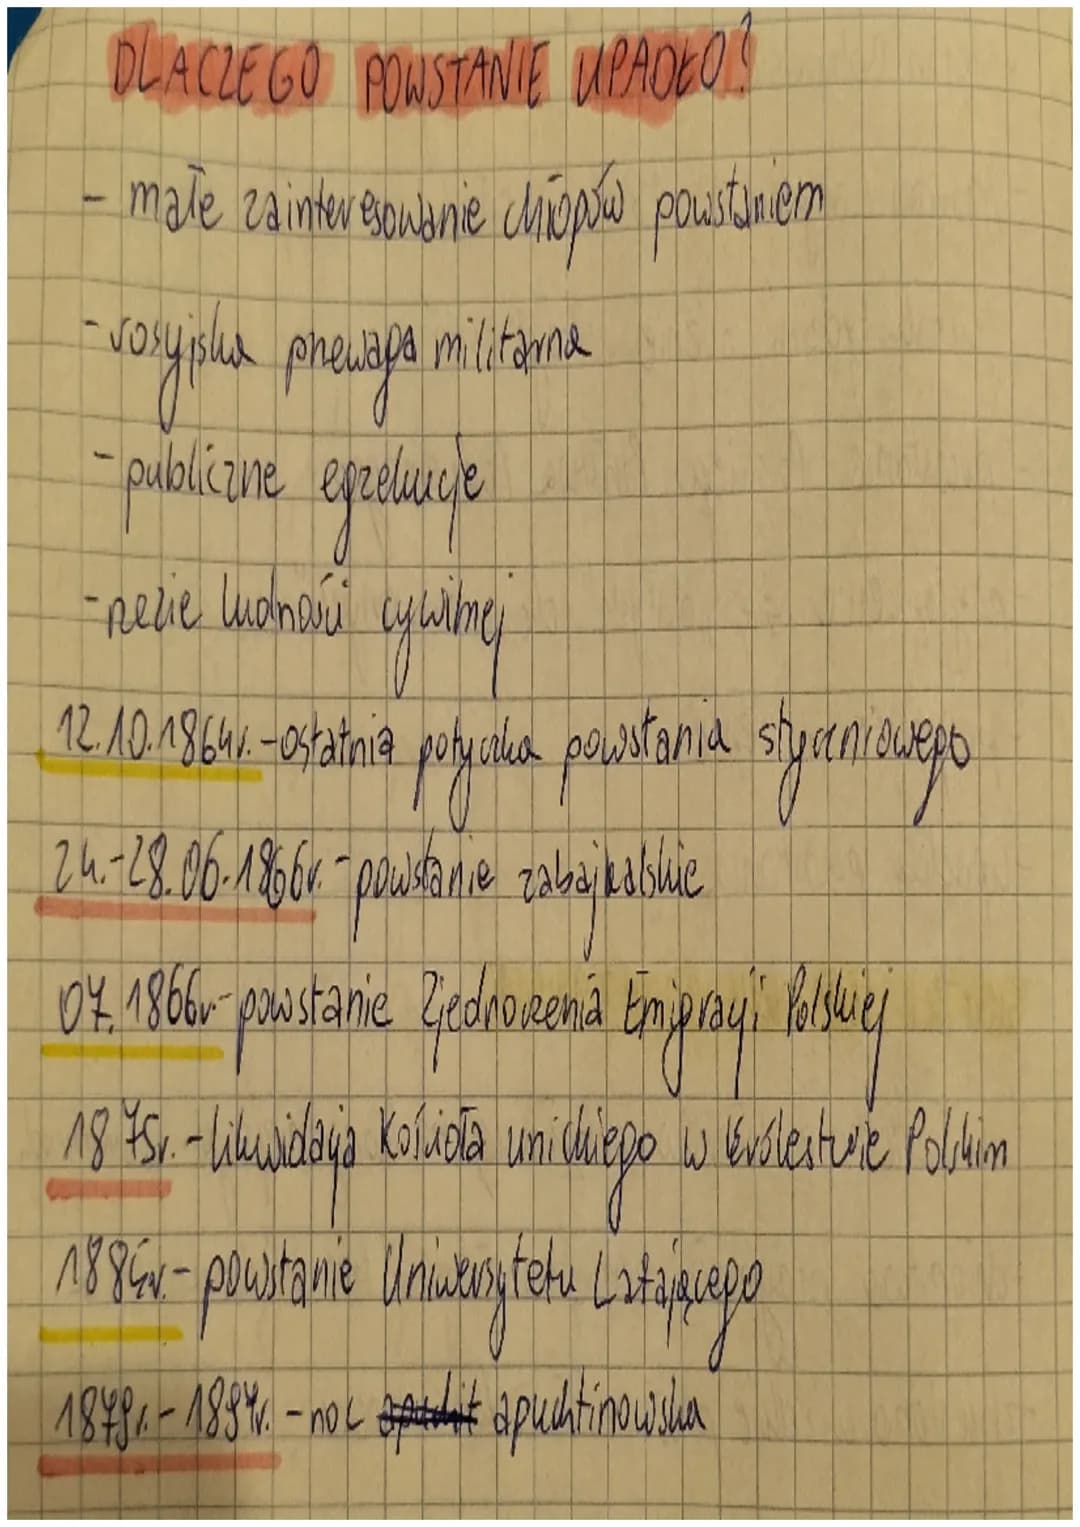 DLACZEGO POWSTANIE UPADŁO?
- małe zainteresowanie chłopów powstaniem
- rosyjska przewaga militarna
- publiczne egzekucje
- rzezie ludności cywilnej
12.10.1864r. - ostatnia potyczka powstania styczniowego
24.-28.06.1866r. - powstanie zabajkalskie
07.1866r - powstanie Zjednoczenia Emigracji Polskiej
1875r. - likwidacja Kościoła unickiego w Królestwie Polskim
powstanie Uniwersytetu Latającego
1879r. - 1897r. - noc apuchtinowska